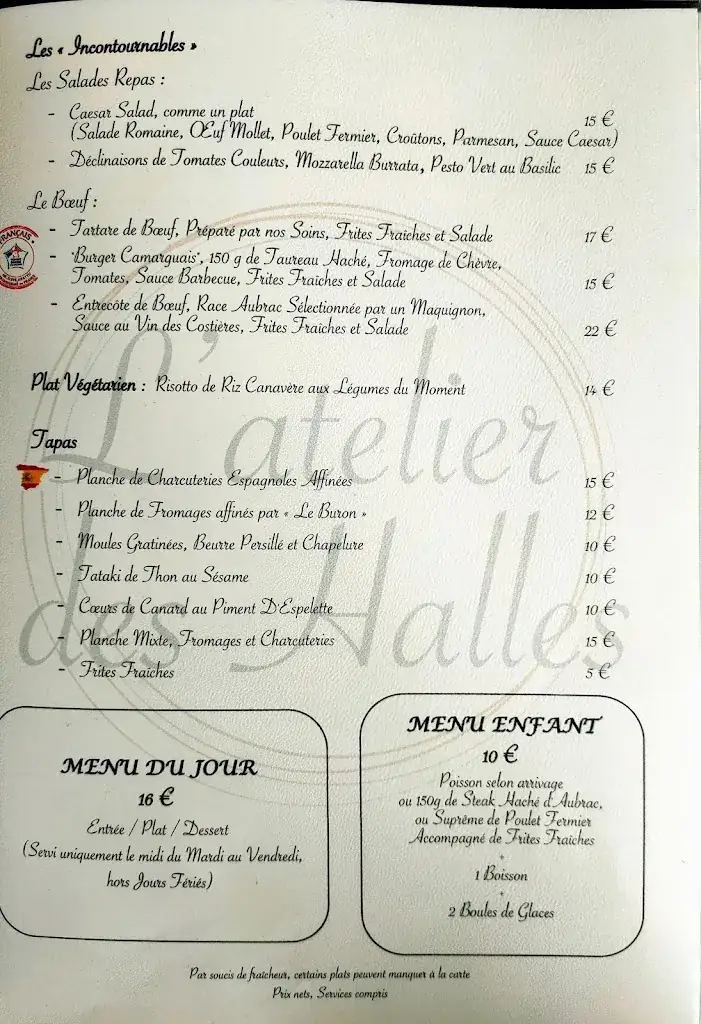 Les « Incontournables »
Les Salades Repas :
- Caesar Salad, comme un plat
(Salade Romaine, Œuf Mollet, Poulet Fermier, Croûtons, Parmesan, Sauce Caesar) 15 €
- Déclinaisons de Tomates Couleurs, Mozzarella Burrata, Pesto Vert au Basilic 15 €
Le Bœuf :
FRANÇAIS
- Tartare de Bœuf, Préparé par nos Soins, Frites Fraîches et Salade 17 €
- "Burger Camarguais", 150 g de Taureau Haché, Fromage de Chèvre,
Tomates, Sauce Barbecue, Frites Fraîches et Salade 15 €
- Entrecôte de Bœuf, Race Aubrac Sélectionnée par un Maquignon,
Sauce au Vin des Costières, Frites Fraîches et Salade 22 €
Plat Végétarien : Risotto de Riz Canavère aux Légumes du Moment 14 €
L'atelier
des Halles
Tapas
- Planche de Charcuteries Espagnoles Affinées 15 €
- Planche de Fromages affinés par « Le Buron » 12 €
- Moules Gratinées, Beurre Persillé et Chapelure 10 €
- Tataki de Thon au Sésame 10 €
- Cœurs de Canard au Piment D'Espelette 10 €
- Planche Mixte, Fromages et Charcuteries 15 €
- Frites Fraîches 5 €
MENU DU JOUR
16 €
Entrée / Plat / Dessert
(Servi uniquement le midi du Mardi au Vendredi,
hors Jours Fériés)
MENU ENFANT
10 €
Poisson selon arrivage
ou 150g de Steak Haché d'Aubrac,
ou Suprême de Poulet Fermier
Accompagné de Frites Fraîches
+
1 Boisson
+
2 Boules de Glaces
Par soucis de fraîcheur, certains plats peuvent manquer à la carte
Prix nets, Services compris